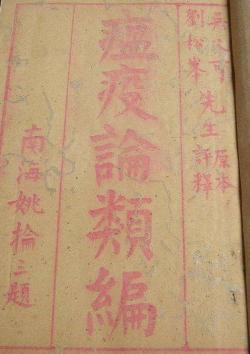 吳又可
劉松峯 先生 原本
評釋
瘟疫論類編
南海姚掄三題